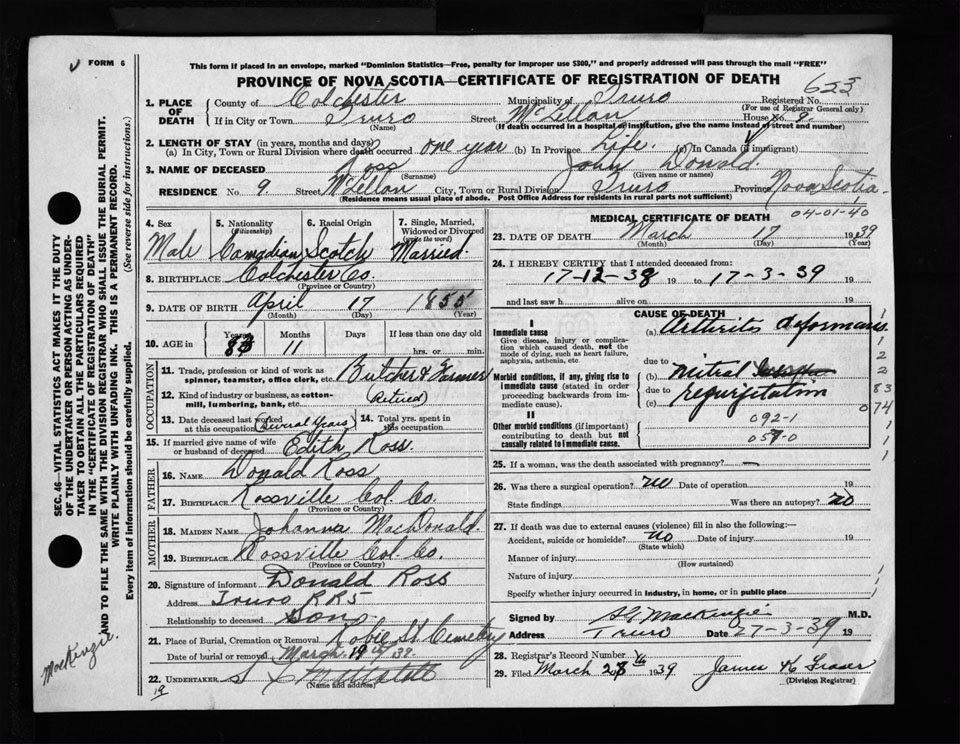 FORM 6
This form if placed in an envelope, marked "Dominion Statistics—Free, penalty for improper use $300," and properly addressed will pass through the mail "FREE"
PROVINCE OF NOVA SCOTIA—CERTIFICATE OF REGISTRATION OF DEATH
623
1. PLACE OF DEATH County of Colchester Municipality of Truro Registered No.
(For use of Registrar General only)
If in City or Town Truro Street McLellan House No. 9.
(Name) (If death occurred in a hospital or institution, give the name instead of street and number)
2. LENGTH OF STAY (in years, months and days)
(a) In City, Town or Rural Division where death occurred one year (b) In Province Life. (c) In Canada (if immigrant)
3. NAME OF DECEASED Ross John Donald.
(Surname) (Given name or names)
RESIDENCE No. 9 Street McLellan City, Town or Rural Division Truro Province Nova Scotia
(Residence means usual place of abode. Post Office Address for residents in rural parts not sufficient)
4. Sex 5. Nationality (Citizenship) 6. Racial Origin 7. Single, Married, Widowed or Divorced (write the word)
Male Canadian Scotch Married.
8. BIRTHPLACE Colchester Co.
(Province or Country)
9. DATE OF BIRTH April 17 1855
(Month) (Day) (Year)
10. AGE in Years Months Days If less than one day
83 11 hrs. or min.
OCCUPATION
11. Trade, profession or kind of work as spinner, teamster, office clerk, etc. Butcher & Farmer
12. Kind of industry or business, as cotton-mill, lumbering, bank, etc. (Retired)
13. Date deceased last worked at this occupation Several Years 14. Total yrs. spent in this occupation
15. If married give name of wife or husband of deceased Edith Ross.
FATHER
16. NAME Donald Ross
17. BIRTHPLACE Rossville Col Co.
(Province or Country)
MOTHER
18. MAIDEN NAME Johanna MacDonald.
19. BIRTHPLACE Rossville Col Co.
(Province or Country)
20. Signature of informant Donald Ross
Address Truro RR5
Relationship to deceased Son
21. Place of Burial, Cremation or Removal Robie St. Cemetery
Date of burial or removal March 19 39
22. UNDERTAKER
(Name and address)
19
MEDICAL CERTIFICATE OF DEATH
04-01-40
23. DATE OF DEATH March 17 1939
(Month) (Day) (Year)
24. I HEREBY CERTIFY that I attended deceased from:
17-12-38 19 to 17-3-39 19
and last saw h alive on 19
CAUSE OF DEATH
I
Immediate cause (a) Arthritis deformans.
Give disease, injury or complication which caused death, not the mode of dying, such as heart failure, asphyxia, asthenia, etc.
due to
Morbid conditions, if any, giving rise to immediate cause (stated in order proceeding backwards from immediate cause).
(b) Mitral
due to regurgitation
(c)
II
Other morbid conditions (if important) contributing to death but not causally related to immediate cause.
092-1
057-0
1
1
2
2
83
074
25. If a woman, was the death associated with pregnancy? —
26. Was there a surgical operation? no Date of operation 19
State findings Was there an autopsy? no
27. If death was due to external causes (violence) fill in also the following:—
Accident, suicide or homicide? no Date of injury 19
(State which)
Manner of injury
(How sustained)
Nature of injury
Specify whether injury occurred in industry, in home, or in public place
Signed by S G MacKenzie M.D.
Address Truro Date 27-3-39 19
28. Registrar's Record Number
29. Filed March 28th 1939 James K Fraser
(Division Registrar)
SEC. 46—VITAL STATISTICS ACT MAKES IT THE DUTY
OF THE UNDERTAKER OR PERSON ACTING AS UNDER-
TAKER TO OBTAIN ALL THE PARTICULARS REQUIRED
IN THE "CERTIFICATE OF REGISTRATION OF DEATH"
AND TO FILE THE SAME WITH THE DIVISION REGISTRAR WHO SHALL ISSUE THE BURIAL PERMIT.
WRITE PLAINLY WITH UNFADING INK. THIS IS A PERMANENT RECORD.
Every item of information should be carefully supplied. (See reverse side for instructions).
MacKenzie.